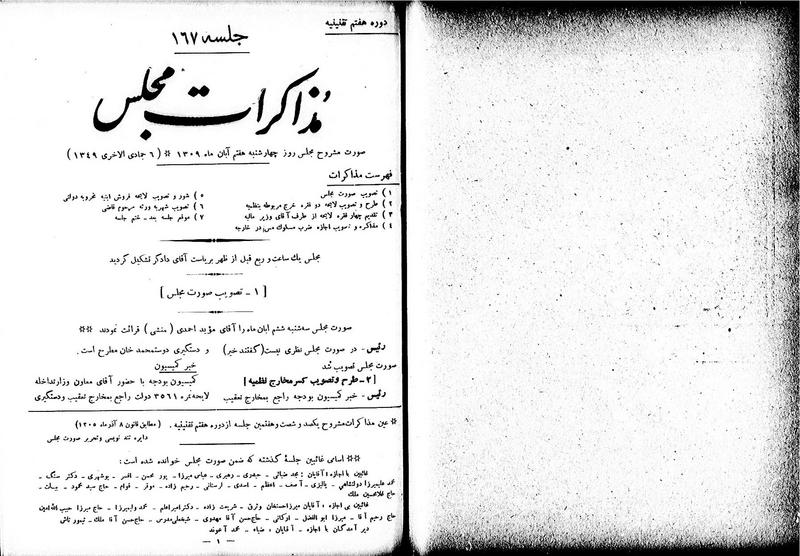 دوره هفتم تقنینیه
جلسه ۱۶۷
مذاکرات مجلس
صورت مشروح مجلس روز چهارشنبه هفتم آبان ماه ۱۳۰۹ ** (۶ جمادی الاخری ۱۳۴۹)
فهرست مذاکرات
۱) تصویب صورت مجلس
۲) طرح و تصویب لایحه دو فقره خرج مربوطه بنظمیه
۳) تقدیم چهار فقره لایحه از طرف آقای وزیر مالیه
۴) مذاکره و تصویب اجازه ضرب مسکوک مس در خارجه
۵) شور و تصویب لایحه فروش ابنیه مخروبه دولتی
۶) تصویب شهریه ورثه مرحوم قاضی
۷) موقع جلسه بعد - ختم جلسه
مجلس یك ساعت و ربع قبل از ظهر بریاست آقای دادگر تشکیل گردید
[ ۱ - تصویب صورت مجلس ]
صورت مجلس سه‌شنبه ششم ابان ماه را آقای مؤید احمدی (منشی) قرائت نمودند **
رئیس - در صورت مجلس نظری نیست (گفتند خیر)
صورت مجلس تصویب شد
[ ۲ - طرح و تصویب کسر مخارج نظمیه ]
رئیس - خبر کمیسیون بودجه راجع بمخارج تعقیب
و دستگیری دوستمحمد خان مطرح است.
خبر کمیسیون
کمیسیون بودجه با حضور آقای معاون وزارتداخله
لایحه نمره ۳۵۶۱ دولت راجع بمخارج تعقیب ودستگیری
* عین مذاکرات مشروح یکصد و شصت و هفتمین جلسه از دوره هفتم تقنینیه . (مطابق قانون ۸ آذر ماه ۱۳۰۵)
دایره تند نویسی و تحریر صورت مجلس
** اسامی غائبین جلسهٔ گذشته که ضمن صورت مجلس خوانده شده است :
غائبین با اجازه : آقایان : مجد ضیائی - حیدری - رهبری - عباس میرزا - پور محسن - افسر - بوشهری - دکتر سنگ -
محمد علیمیرزا دولتشاهی - بالیزی - آصف - اعظم - اسدی - لرستانی - رحیم زاده - موقر - قوام - حاج سید محمود - بیات -
حاج غلامحسین ملك
غائبین بی اجازه : آقایان میرزا حسنخان وثوق - شریعت زاده - دکتر امیراعلم - محمد ولیمیرزا - حاج میرزا حبیب الله امین
حاج رحیم آقا - میرزا ابو الفضل - اورنگی - حاج حسن آقا مهدوی - شیخعلی مدرس - حاج حسن آقا ملك - تیمورتاش
دیر آمدگان با اجازه - آقایان : ضیاء - محمد آخوند
— ۱ —